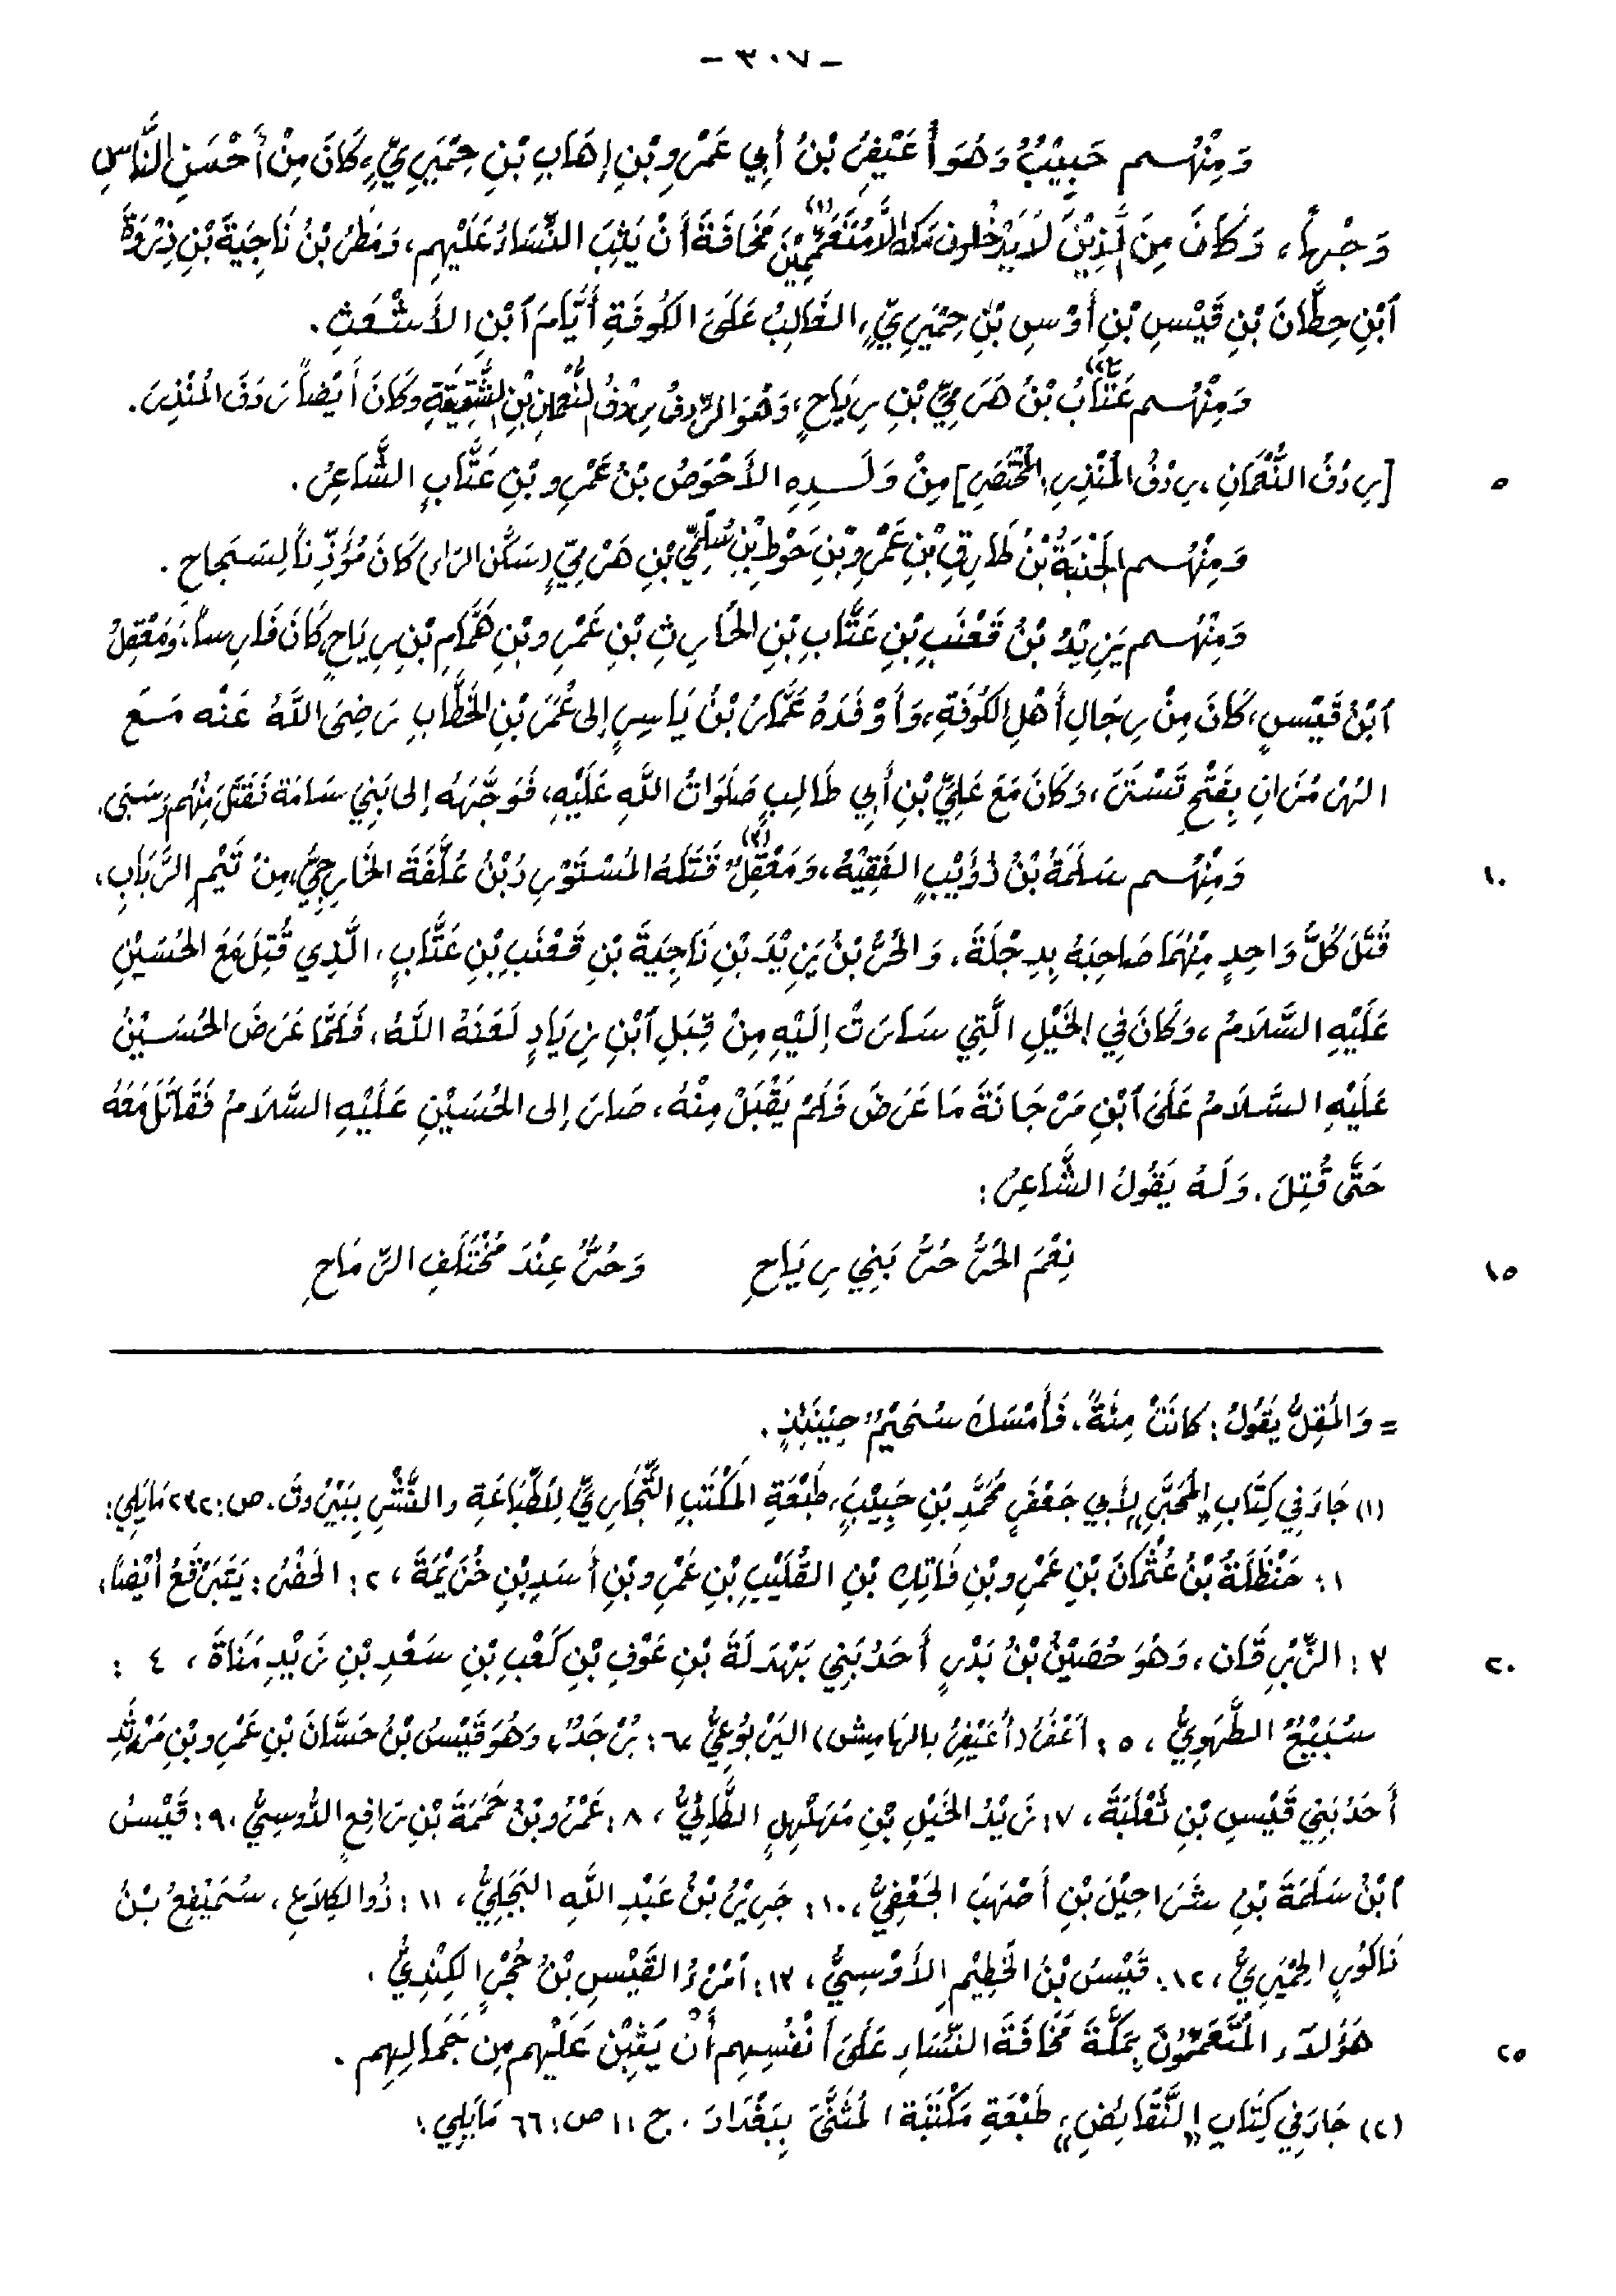 - ٣٠٧ -
وَمِنْهُم حَبِيْبٌ وَهُوَ أُعَيْفِرُ بْنُ أَبِي عَمْرِو بْنِ إِهَابِ بْنِ حِمْيَرِيٍّ، كَانَ مِنْ أَحْسَنِ النَّاسِ
وَجْهاً، وَكَانَ مِنَ الَّذِيْنَ لَا يَدْخُلُونَ مَكَّةَ إلَّا مُتَعَمِّمِيْنَ (١) مَخَافَةَ أَنْ يَثِبَ النِّسَاءُ عَلَيْهِم، وَمَطَرُ بْنُ نَاجِيَةَ بْنِ ذِرْوَةَ
ٱبْنِ حِطَّانَ بْنِ قَيْسِ بْنِ أَوْسِ بْنِ حِمْيَرِيٍّ، الغَالِبُ عَلَىَ الكُوفَةِ أَيَّامَ ٱبْنِ الأَشْعَثِ.
وَمِنْهُم عَتَّابُ (٢) بْنُ هَرَمِيِّ بْنِ رِيَاحٍ، وَهُوَ الرِّدْفُ رِدْفُ النُّعْمَانِ بْنِ الشَّقِيْقَةِ وَكَانَ أَيْضاً رَدَفَ المُنْذِرَ.
[رِدْفُ النُّعْمَانِ، رِدْفُ المُنْذِرِ، المُخْتَصَرِ] مِنْ وَلَدِهِ الأَحْوَصُ بْنُ عَمْرِو بْنِ عَتَّابٍ الشَّاعِرُ. ٥
وَمِنْهُم الجَنَبَةُ بْنُ طَارِقِ بْنِ عَمْرِو بْنِ حَوْطِ بْنِ سُلْمِيِّ بْنِ هَرْمِيٍّ (سَكَّنَ الرَاء) كَانَ مُؤَذِّناً لِسَجَاحِ.
وَمِنْهُم يَزِيْدُ بْنُ قَعْنَبِ بْنِ عَتَّابِ بْنِ الحَارِثِ بْنِ عَمْرِو بْنِ هَمَّامِ بْنِ رِيَاحٍ، كَانَ فَارِساً، وَمَعْقِلُ
ٱبْنُ قَيْسٍ، كَانَ مِنْ رِجَالِ أَهْلِ الكُوفَةِ، وَأَوْفَدَهُ عَمَّارُ بْنُ يَاسِرٍ إلى عُمَرَ بْنِ الخَطَّابِ رَضِيَ اللَّهُ عَنْه مَعَ
الهُرْمُزَانِ بِفَتْحِ تَسْتَرَ، وَكَانَ مَعَ عَلِيِّ بْنِ أَبِي طَالِبٍ صَلَوَاتُ اللَّهِ عَلَيْهِ، فَوَجَّهَهُ إلى بَنِي سَامَةَ فَقَتَلَ مِنْهُم وَسَبَى.
وَمِنْهُم سَلَمَةُ بْنُ ذُؤَيْبٍ الفَقِيْهُ، وَمَعْقِلٌ (٣) قَتَلَهُ المُسْتَوْرِدُ بْنُ عُلَّفَةَ الخَارِجِيُّ، مِنْ تَيْمِ الرِّبَابِ، ١٠
قُتِلَ كُلُّ وَاحِدٍ مِنْهُمَا صَاحِبَهُ بِدِجْلَةَ. وَالحُرُّ بْنُ يَزِيْدَ بْنِ نَاجِيَةَ بْنِ قَعْنَبِ بْنِ عَتَّابٍ، الَّذِي قُتِلَ مَعَ الحُسَيْنِ
عَلَيْهِ السَّلَامُ، وَكَانَ فِي الخَيْلِ الَّتِي سَارَتْ إلَيْهِ مِنْ قِبَلِ ٱبْنِ زِيَادٍ لَعَنَهُ اللَّهُ، فَلَمَّا عَرَضَ الحُسَيْنُ
عَلَيْهِ السَّلَامُ عَلَىَ ٱبْنِ مَرْجَانَةَ مَا عَرَضَ فَلَمْ يَقْبَلْ مِنْهُ، صَارَ إلى الحُسَيْنِ عَلَيْهِ السَّلَامُ فَقَاتَلَ مَعَهُ
حَتَّى قُتِلَ. وَلَهُ يَقُولُ الشَّاعِرُ:
نِعْمَ الحُرُّ حُرُّ بَنِي رِيَاحِ وَحُرٌّ عِنْدَ مُخْتَلَفِ الرِّمَاحِ ١٥
= وَالمُقِلُّ يَقُولُ: كَانَتْ مِئَةً، فَأَمْسَكَ سُحَيْمٌ حِيْنَئِذٍ.
(١) جَاءَ فِي كِتَابِ «المُحَبَّرِ» لِأَبِي جَعْفَرٍ مُحَمَّدِ بْنِ حَبِيْبٍ، طَبْعَةِ المَكْتَبِ التِّجَارِيِّ لِلطِّبَاعَةِ وَالنَّشْرِ بِبَيْرُوتَ. ص: ٢٣٢ مَا يَلِي:
١: حَنْظَلَةُ بْنُ عُثْمَانَ بْنِ عَمْرِو بْنِ فَاتِكِ بْنِ القُلَيْبِ بْنِ عَمْرِو بْنِ أَسَدِ بْنِ خُزَيْمَةَ، ٢: الحَضْرُ: يَتَبَرْقَعُ أَيْضاً،
٣: الزِّبْرِقَان، وَهُوَ حُصَيْنُ بْنُ بَدْرٍ أَحَدُ بَنِي بَهْدَلَةَ بْنِ عَوْفِ بْنِ كَعْبِ بْنِ سَعْدِ بْنِ زَيْدِ مَنَاةَ، ٤: ٢٠
سُبَيْعٌ الطُّهَوِيُّ، ٥: أَعْفَرُ (أُعَيْفِرُ بالهَامِش) اليَرْبُوعِيُّ، ٦: بُرْجَدٌ، وَهُوَ قَيْسُ بْنُ حَسَّانَ بْنِ عَمْرِو بْنِ مَرْثَدٍ
أَحَدُ بَنِي قَيْسِ بْنِ ثَعْلَبَةَ، ٧: زَيْدُ الخَيْلِ بْنِ مُهَلْهِلٍ الطَّائِيُّ، ٨: عَمْرُو بْنُ حُمَمَةَ بْنِ رَافِعٍ الدُّوسِيُّ، ٩: قَيْسُ
ٱبْنُ سَلَمَةَ بْنِ شَرَاحِيْلَ بْنِ أَصْهَبَ الجَعْفِيُّ، ١٠: جَرِيْرُ بْنُ عَبْدِ اللَّهِ البَجَلِيُّ، ١١: ذُو الكِلَاعِ، سُمَيْفِعُ بْنُ
نَاكُورٍ الحِمْيَرِيُّ، ١٢: قَيْسُ بْنُ الخَطِيْمِ الأَوْسِيُّ، ١٣: ٱمْرُؤُ القَيْسِ بْنُ حُجْرٍ الكِنْدِيُّ.
هَؤُلاَءِ المُتَعَمِّمُونَ بِمَكَّةَ مَخَافَةَ النِّسَاءِ عَلَىَ أَنْفُسِهِم أَنْ يَثِبْنَ عَلَيْهِم مِنْ جَمَالِهِم. ٢٥
(٢) جَاءَ فِي كِتَابِ «النَّقَائِضِ» طَبْعَةِ مَكْتَبَة المُثَنَّىَ بِبَغْدَادَ. ج ١: ص: ٦٦ مَا يَلِي: